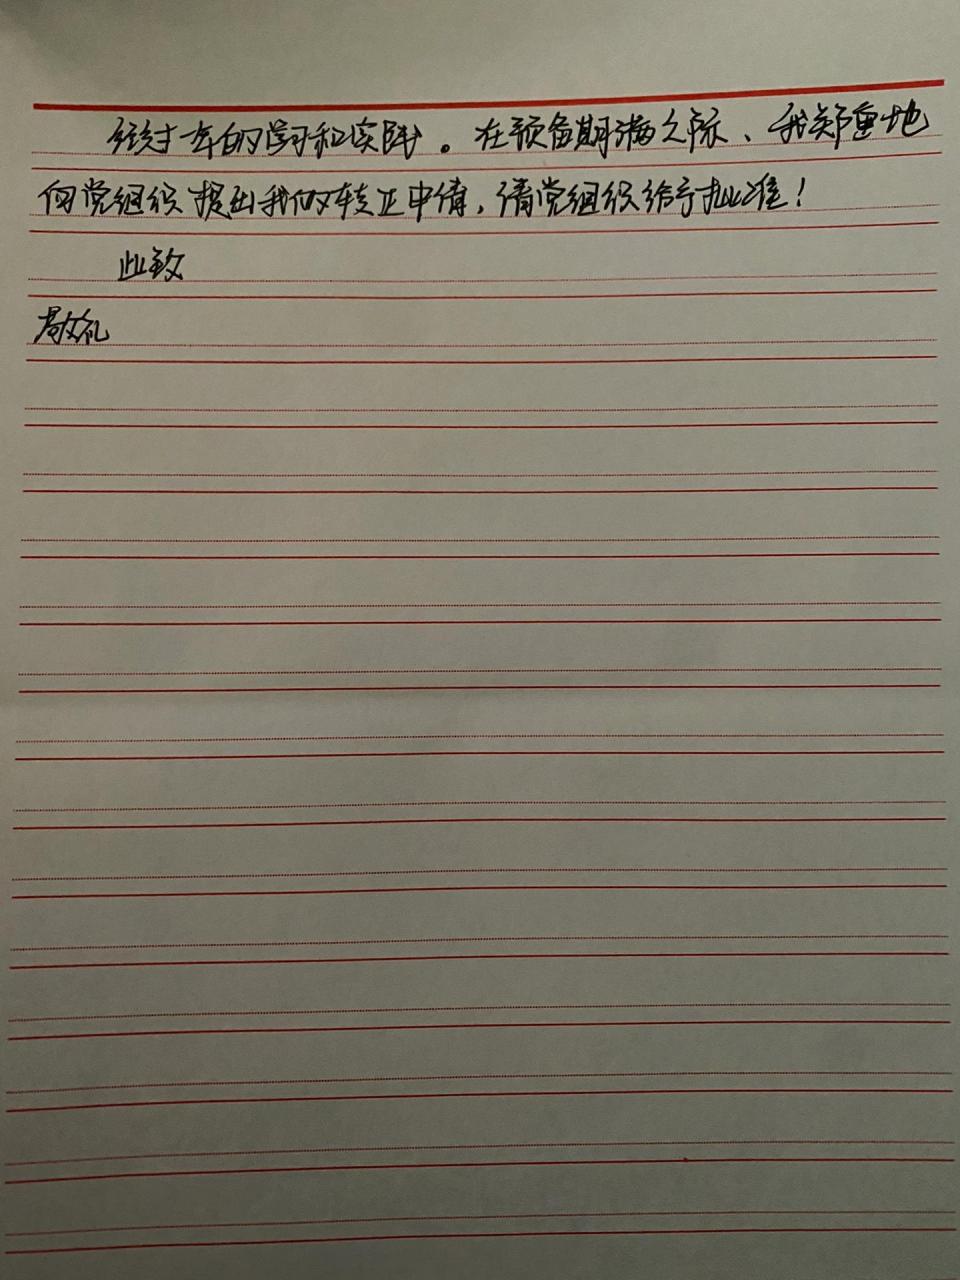 经过一年的学习和实践。在预备期满之际、我郑重地
向党组织提出我的转正申请，请党组织给予批准！
此致
敬礼